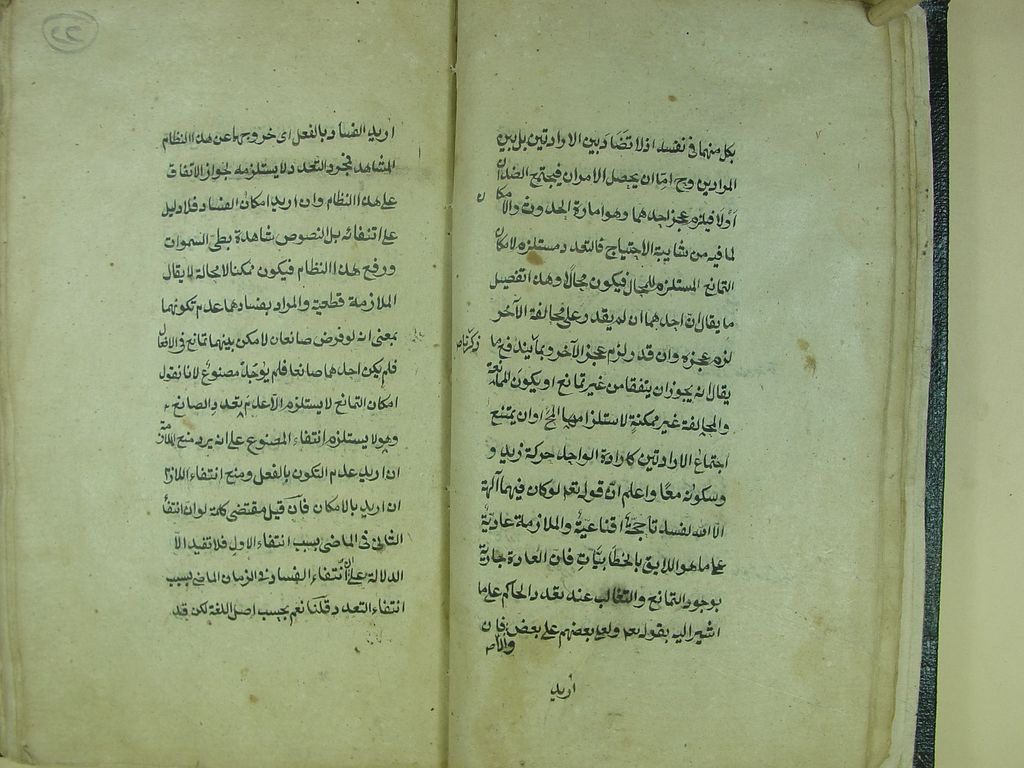 بكل منهما فى نفسه اذ لا تضاد بين الارادتين بل بين
المرادين وح اما ان يحصل الامران فيجتمع الضدان
او لا فيلزم عجز احدهما وهو امارة الحدوث والامكان
لما فيه من شايبة الاحتياج فالتعدد مستلزم لامكان
التمانع المستلزم للمحال فيكون محالا وهذا تفصيل
ما يقال ان احدهما ان لم يقدر على مخالفة الآخر
لزم عجزه وان قدر لزم عجز الآخر وبما ذكرنا يندفع ما
يقال انه يجوز ان يتفقا من غير تمانع او يكون الممانعة
والمخالفة غير ممكنة لاستلزامها المح او ان يمتنع
اجتماع الارادتين كارادة الواحد حركة زيد و
وسكونه معا واعلم ان قوله تعم لو كان فيهما آلهة
الا الله لفسدتا حجة اقناعية والملازمة عادية
على ما هو اللايق بالخطابيات فان العادة جارية
بوجود التمانع والتغالب عند تعدد الحاكم على ما
اشير اليه بقوله تعم ولعلا بعضهم على بعض والا فان
اريد
اريد الفساد بالفعل اى خروجهما عن هذا النظام
المشاهد فمجرد التعدد لا يستلزمه لجواز الاتفاق
على هذا النظام وان اريد امكان الفساد فلا دليل
على انتفائه بل النصوص شاهدة بطى السموات
ورفع هذا النظام فيكون ممكنا لا محالة لا يقال
الملازمة قطعية والمراد بفسادهما عدم تكونهما
بمعنى انه لو فرض صانعان لامكن بينهما تمانع فى الافعال
فلم يكن احدهما صانعا فلم يوجد مصنوع لانا نقول
امكان التمانع لا يستلزم الا عدم تعدد الصانع
وهو لا يستلزم انتفاء المصنوع على انه يرد منع الملازمة
ان اريد عدم التكون بالفعل ومنع انتفاء اللازم
ان اريد بالامكان فان قيل مقتضى كلمة لو ان انتفاء
الثانى فى الماضى بسبب انتفاء الاول فلا تفيد الا
الدلالة على ان انتفاء الفساد فى الزمان الماضى بسبب
انتفاء التعدد قلنا نعم بحسب اصل اللغة لكن قد